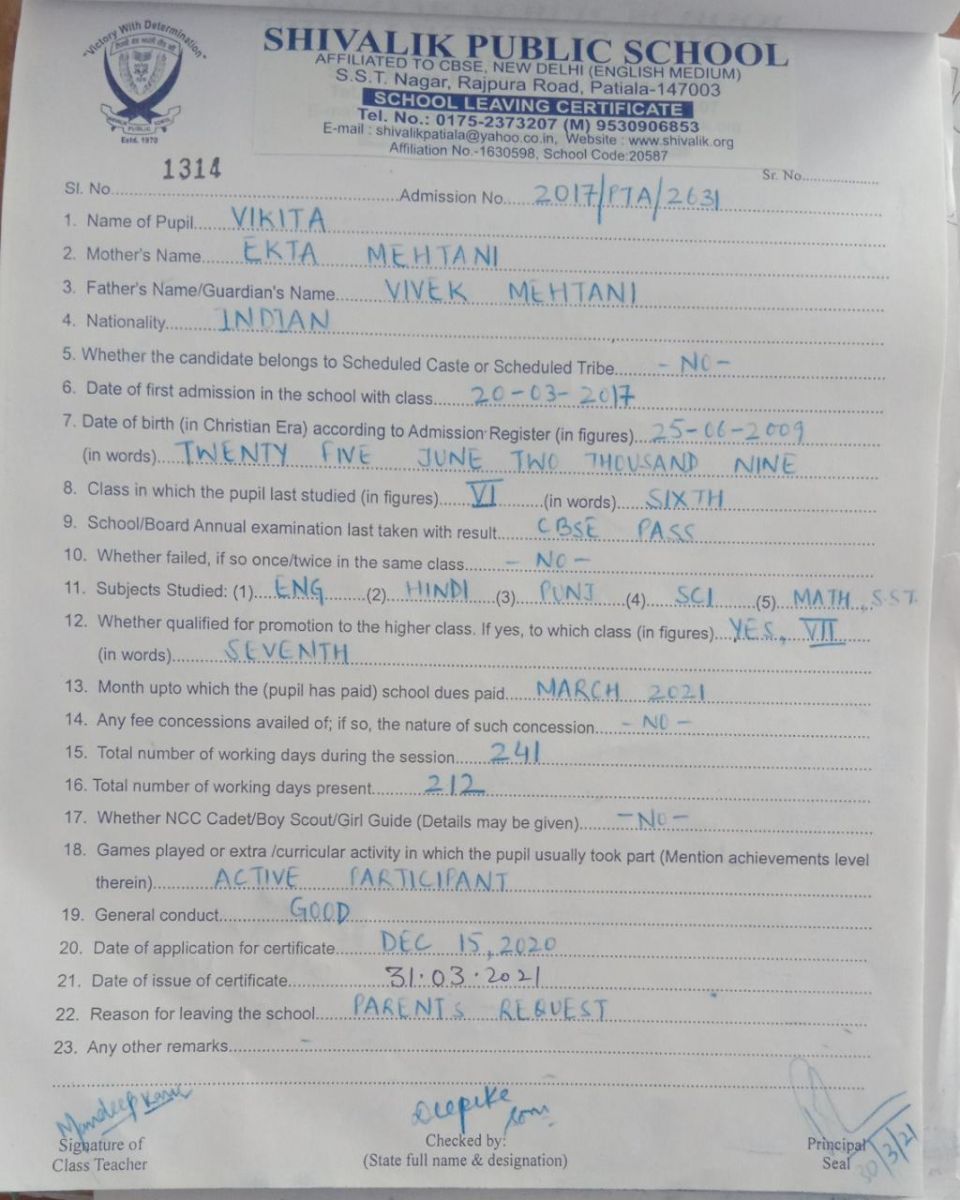 "Victory With Determination"
SHIVALIK PUBLIC SCHOOL
Estd. 1970
SHIVALIK PUBLIC SCHOOL
AFFILIATED TO CBSE, NEW DELHI (ENGLISH MEDIUM)
S.S.T. Nagar, Rajpura Road, Patiala-147003
SCHOOL LEAVING CERTIFICATE
Tel. No.: 0175-2373207 (M) 9530906853
E-mail : shivalikpatiala@yahoo.co.in, Website : www.shivalik.org
Affiliation No.-1630598, School Code:20587
Sl. No. 1314 Admission No. 2017/PTA/2631 Sr. No.
1. Name of Pupil VIKITA
2. Mother's Name EKTA MEHTANI
3. Father's Name/Guardian's Name VIVEK MEHTANI
4. Nationality INDIAN
5. Whether the candidate belongs to Scheduled Caste or Scheduled Tribe - NO -
6. Date of first admission in the school with class 20-03-2017
7. Date of birth (in Christian Era) according to Admission Register (in figures) 25-06-2009
(in words) TWENTY FIVE JUNE TWO THOUSAND NINE
8. Class in which the pupil last studied (in figures) VI (in words) SIXTH
9. School/Board Annual examination last taken with result CBSE PASS
10. Whether failed, if so once/twice in the same class - NO -
11. Subjects Studied: (1) ENG (2) HINDI (3) PUNJ (4) SCI (5) MATH, S.ST.
12. Whether qualified for promotion to the higher class. If yes, to which class (in figures) YES, VII
(in words) SEVENTH
13. Month upto which the (pupil has paid) school dues paid MARCH 2021
14. Any fee concessions availed of; if so, the nature of such concession - NO -
15. Total number of working days during the session 241
16. Total number of working days present 212
17. Whether NCC Cadet/Boy Scout/Girl Guide (Details may be given) - NO -
18. Games played or extra /curricular activity in which the pupil usually took part (Mention achievements level
therein) ACTIVE PARTICIPANT
19. General conduct GOOD
20. Date of application for certificate DEC 15, 2020
21. Date of issue of certificate 31.03.2021
22. Reason for leaving the school PARENTS REQUEST
23. Any other remarks -
Mandeep Kaur
Signature of
Class Teacher
Checked by:
(State full name & designation)
Principal
Seal
30/3/21